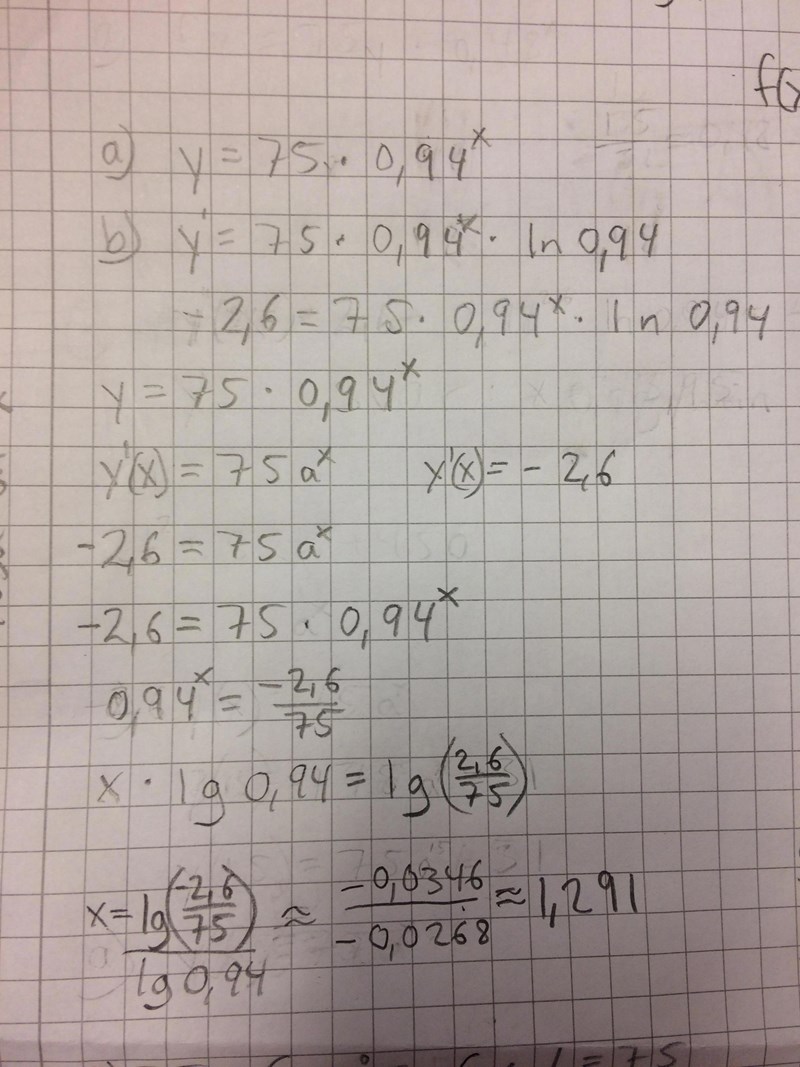 f(x
a) y = 75 · 0,94^x
b) y' = 75 · 0,94^x · ln 0,94
-2,6 = 75 · 0,94^x · ln 0,94
y = 75 · 0,94^x
y'(x) = 75 a^x y'(x) = -2,6
-2,6 = 75 a^x
-2,6 = 75 · 0,94^x
0,94^x = -2,6/75
x · lg 0,94 = lg(2,6/75)
x = lg(-2,6/75)/lg 0,94 ≈ -0,0346/-0,0268 ≈ 1,291
1 = 75